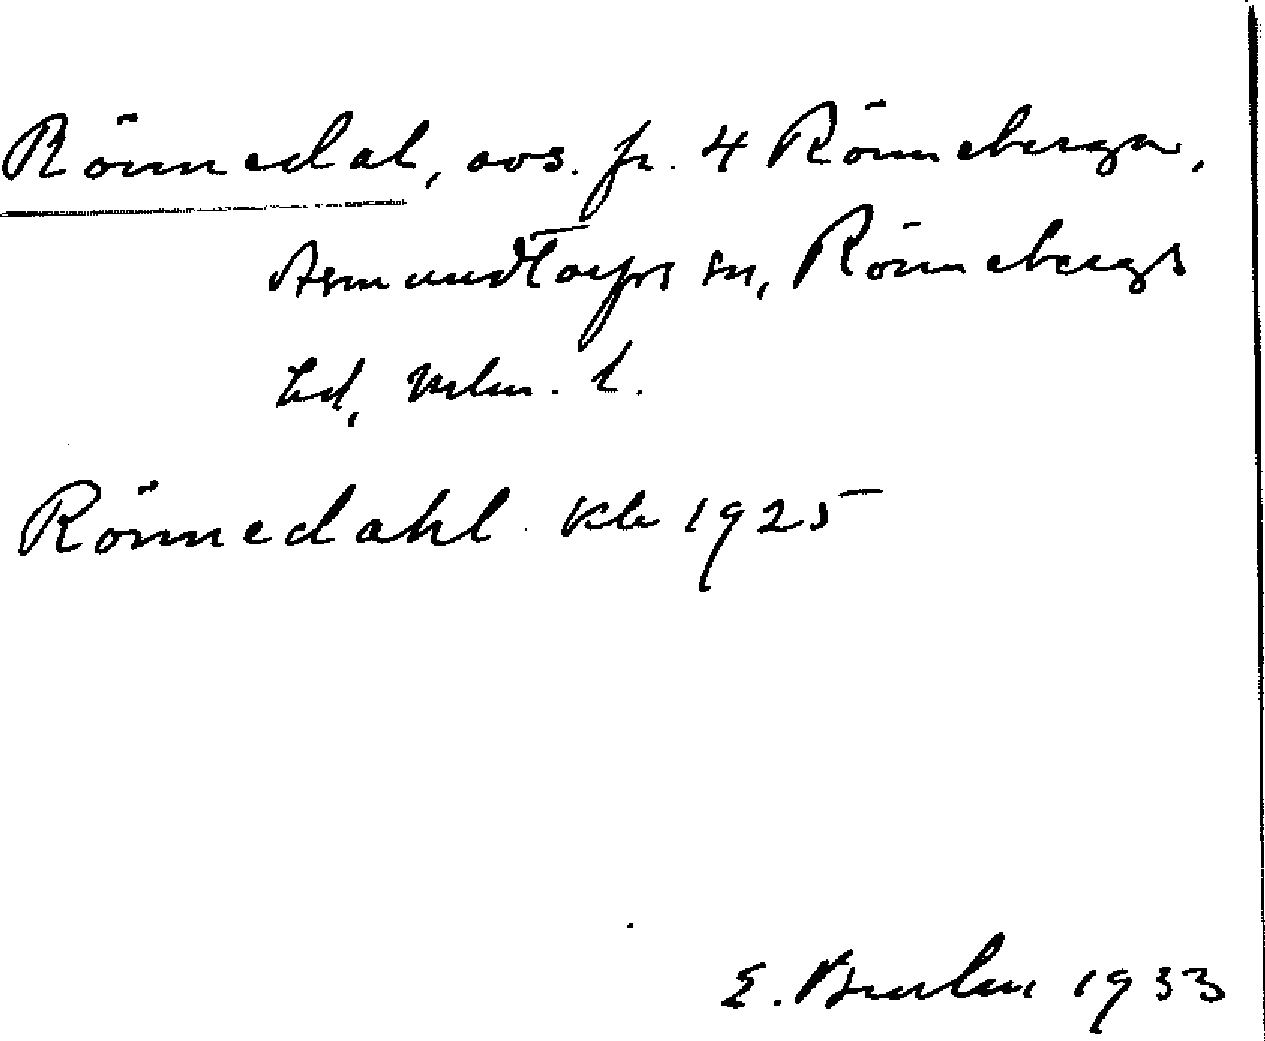 Rönnedal, avs. fr. 4 Rönneberga,
Asmundtorps sn, Rönnebergs
hd, Mlm. l.
Rönnedahl Kb 1925
E. 1933